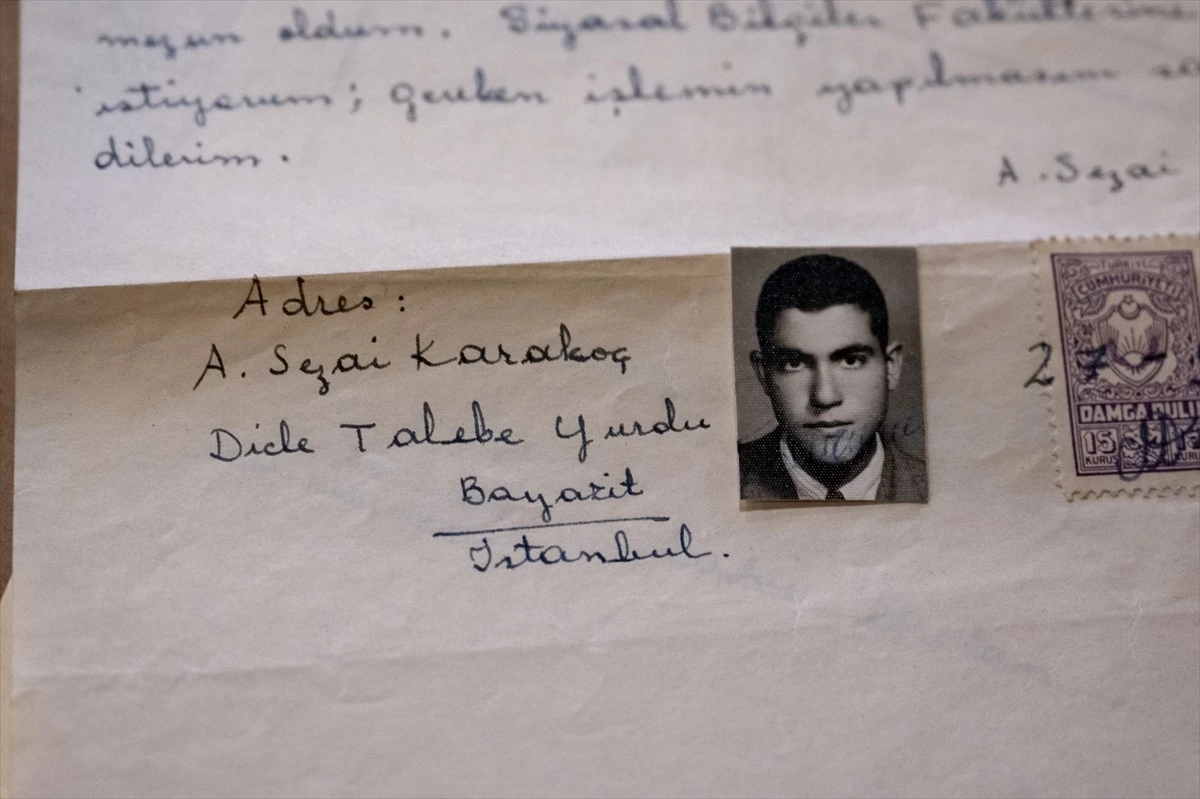 mezun oldum. Siyasal Bilgiler Fakültesine
istiyorum; gereken işlemin yapılmasını
dilerim.
A. Sezai
Adres:
A. Sezai Karakoç
Dicle Talebe Yurdu
Bayazit
İstanbul.
27-
TÜRKİYE
CUMHURİYETİ
DAMGA PULU
15
KURUŞ KURUŞ